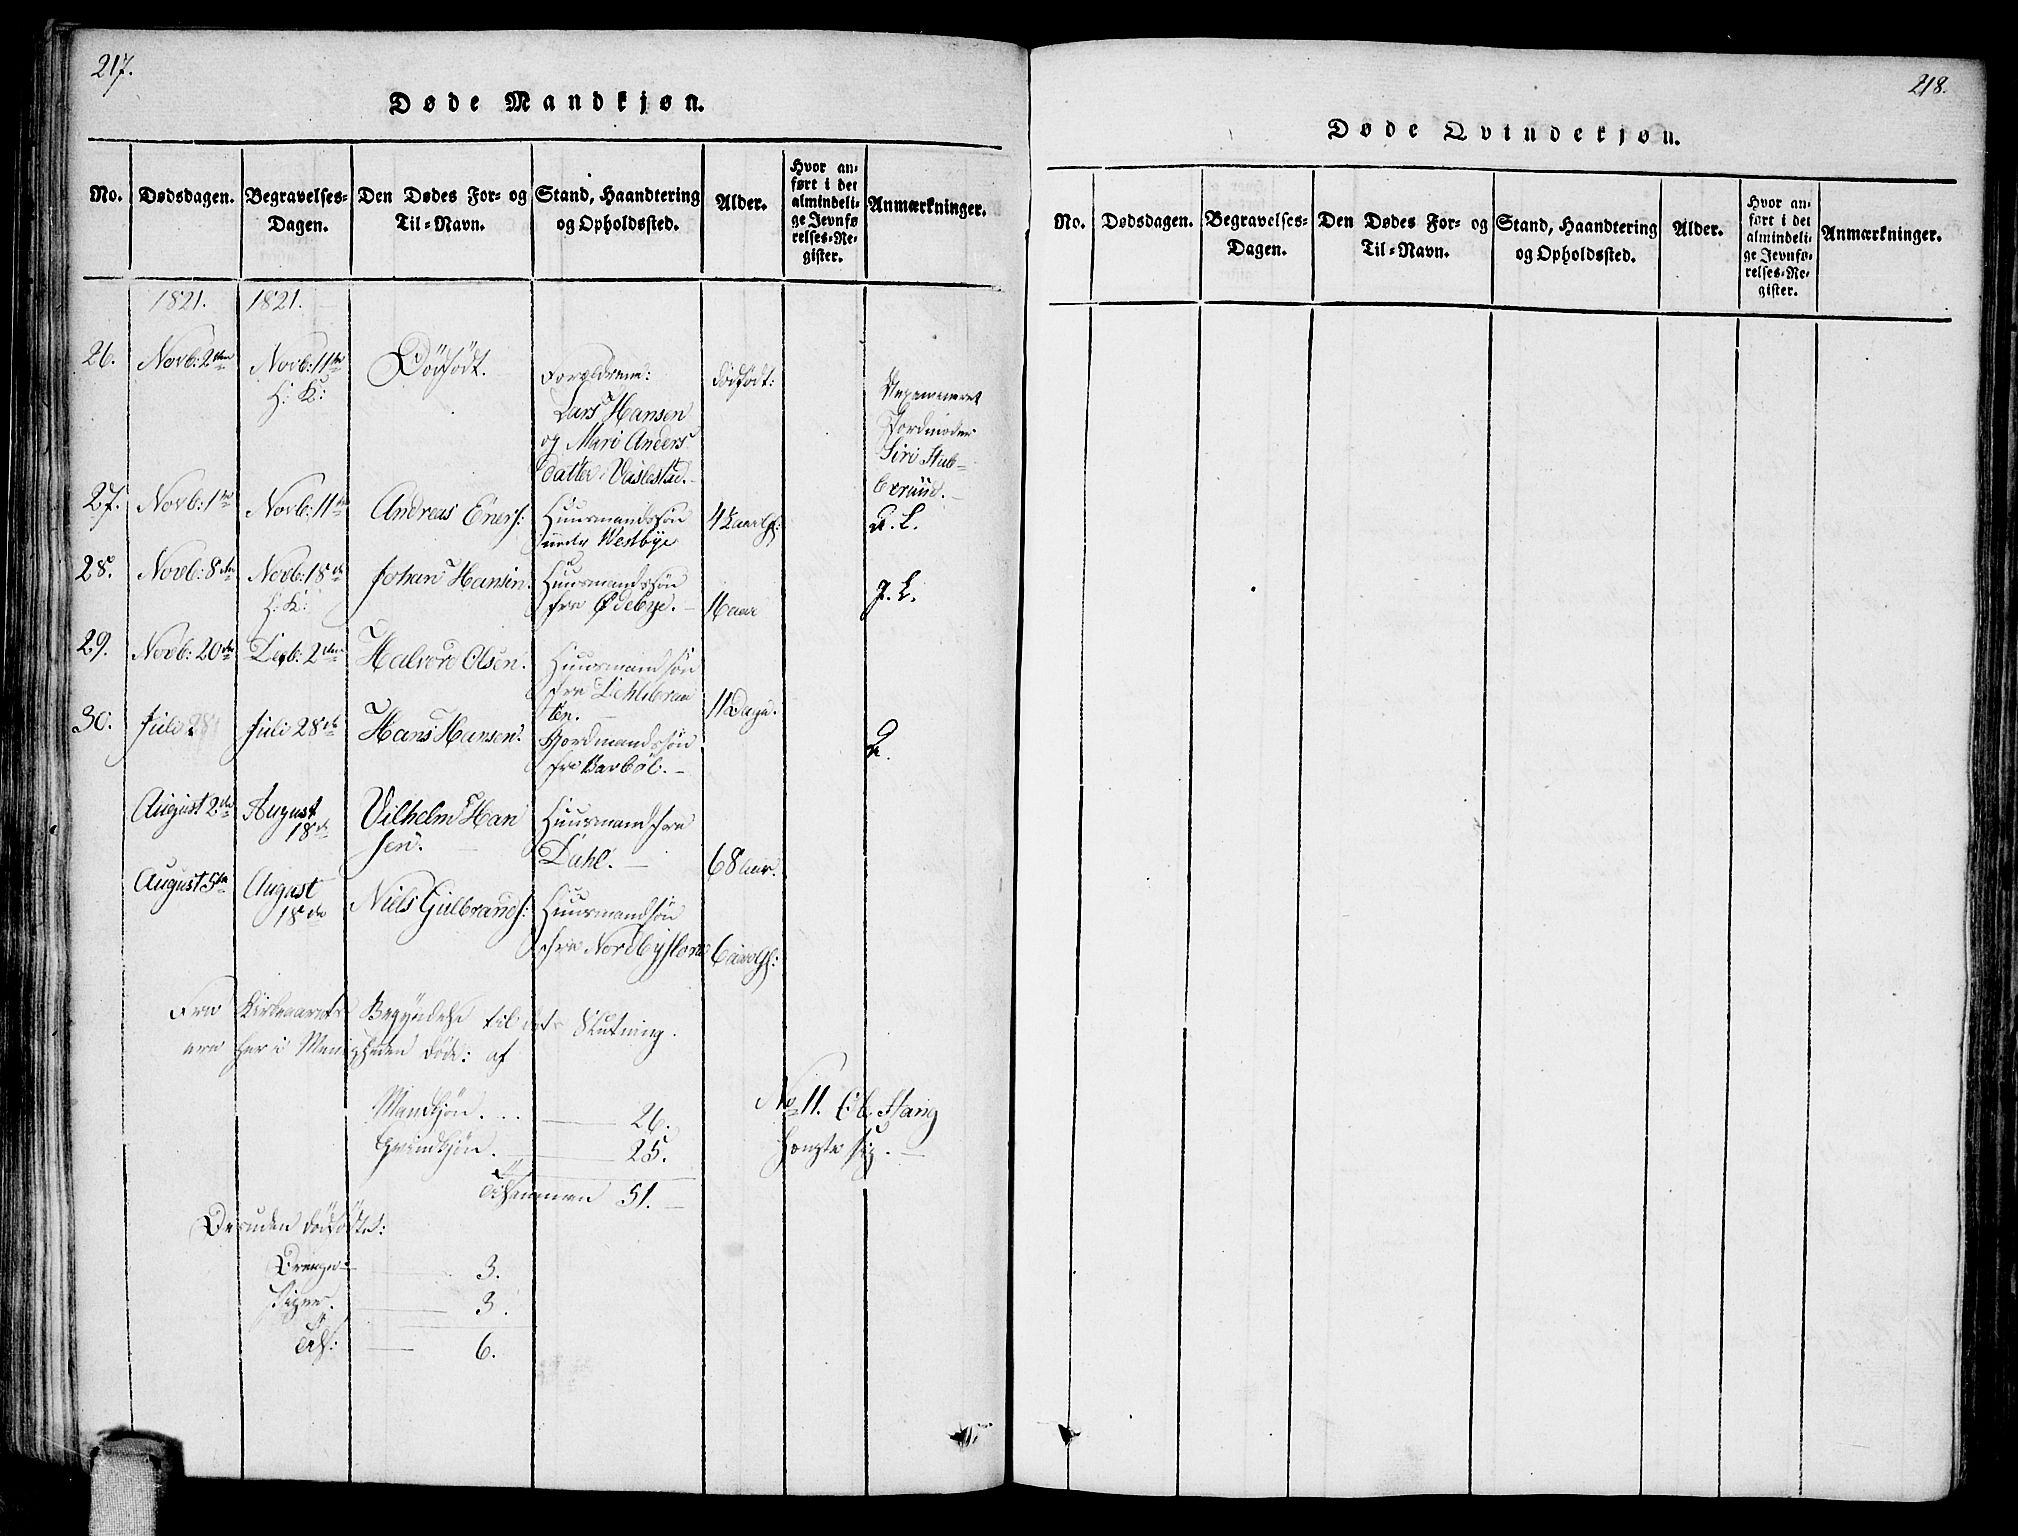 217.
Døde Mandkjøn.
No.
Dødsdagen.
Begravelses-
Dagen.
Den Dødes For- og
Til-Navn.
Stand, Haandtering
og Opholdssted.
Alder.
Hvor an-
ført i det
almindeli-
ge Jevnfø-
relses-Re-
gister.
Anmærkninger.
1821. 1821.
26. Novb: 2den Novb: 11te Dödfödt. Forældrene: dödfödt:
H: K:
Lars Hansen
og Mari Anders
datter
Jordmoder
Siri Stub-
berud.
27. Novb: 1te Novb: 11te Andreas Eners: Huusmandssön G. L.
under Westbye
28. Novb: 8de Novb: 18de Johan Hansen. Huusmandssön
H: K: fra Ødebye. 11 aar J. L.
29. Novb: 20de Decb: 2den Halvord Olsen. Huusmandsön
fra
ten. 11 Dage.
30. Juli 28 Juli 28de Hans Hansen. Gaardmandssön
fra Barböl.
August 2den August
18de
Vilhelm Han
sen.
Huusmand fra
Dahl. 68 aar.
August 5te August
18de
Niels Gulbrands: Huusmandsön
fra Nordby
Fra Kirkeaarets Begyndelse til dets Slutning
ere her i Menigheden döde: af
Mandkjön. 26.
Qvindkjön. 25.
Tilsammen 51.
Desuden dödfödte:
Drenge 3.
Piger. 3.
Tils: 6.
No 11. Ol. Stang
hengte sig.
218.
Døde Qvindekjøn.
No.
Dødsdagen.
Begravelses-
Dagen.
Den Dødes For- og
Til-Navn.
Stand, Haandtering
og Opholdssted.
Alder.
Hvor an-
ført i det
almindeli-
ge Jevnfø-
relses-Re-
gister.
Anmærkninger.